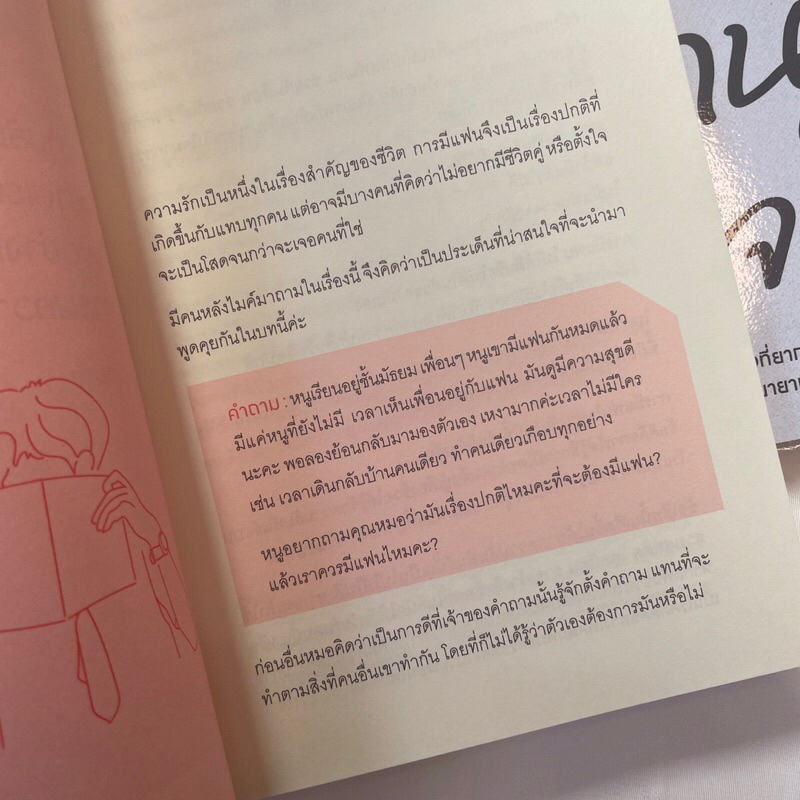 ความรักเป็นหนึ่งในเรื่องสำคัญของชีวิต การมีแฟนจึงเป็นเรื่องปกติที่
เกิดขึ้นกับแทบทุกคน แต่อาจมีบางคนที่คิดว่าไม่อยากมีชีวิตคู่ หรือตั้งใจ
จะเป็นโสดจนกว่าจะเจอคนที่ใช่
มีคนหลังไมค์มาถามในเรื่องนี้ จึงคิดว่าเป็นประเด็นที่น่าสนใจที่จะนำมา
พูดคุยกันในบทนี้ค่ะ
คำถาม : หนูเรียนอยู่ชั้นมัธยม เพื่อนๆ หนูเขามีแฟนกันหมดแล้ว
มีแค่หนูที่ยังไม่มี เวลาเห็นเพื่อนอยู่กับแฟน มันดูมีความสุขดี
นะคะ พอลองย้อนกลับมามองตัวเอง เหงามากค่ะเวลาไม่มีใคร
เช่น เวลาเดินกลับบ้านคนเดียว ทำคนเดียวเกือบทุกอย่าง
หนูอยากถามคุณหมอว่ามันเรื่องปกติไหมคะที่จะต้องมีแฟน?
แล้วเราควรมีแฟนไหมคะ?
ก่อนอื่นหมอคิดว่าเป็นการดีที่เจ้าของคำถามนั้นรู้จักตั้งคำถาม แทนที่จะ
ทำตามสิ่งที่คนอื่นเขาทำกัน โดยที่ก็ไม่ได้รู้ว่าตัวเองต้องการมันหรือไม่